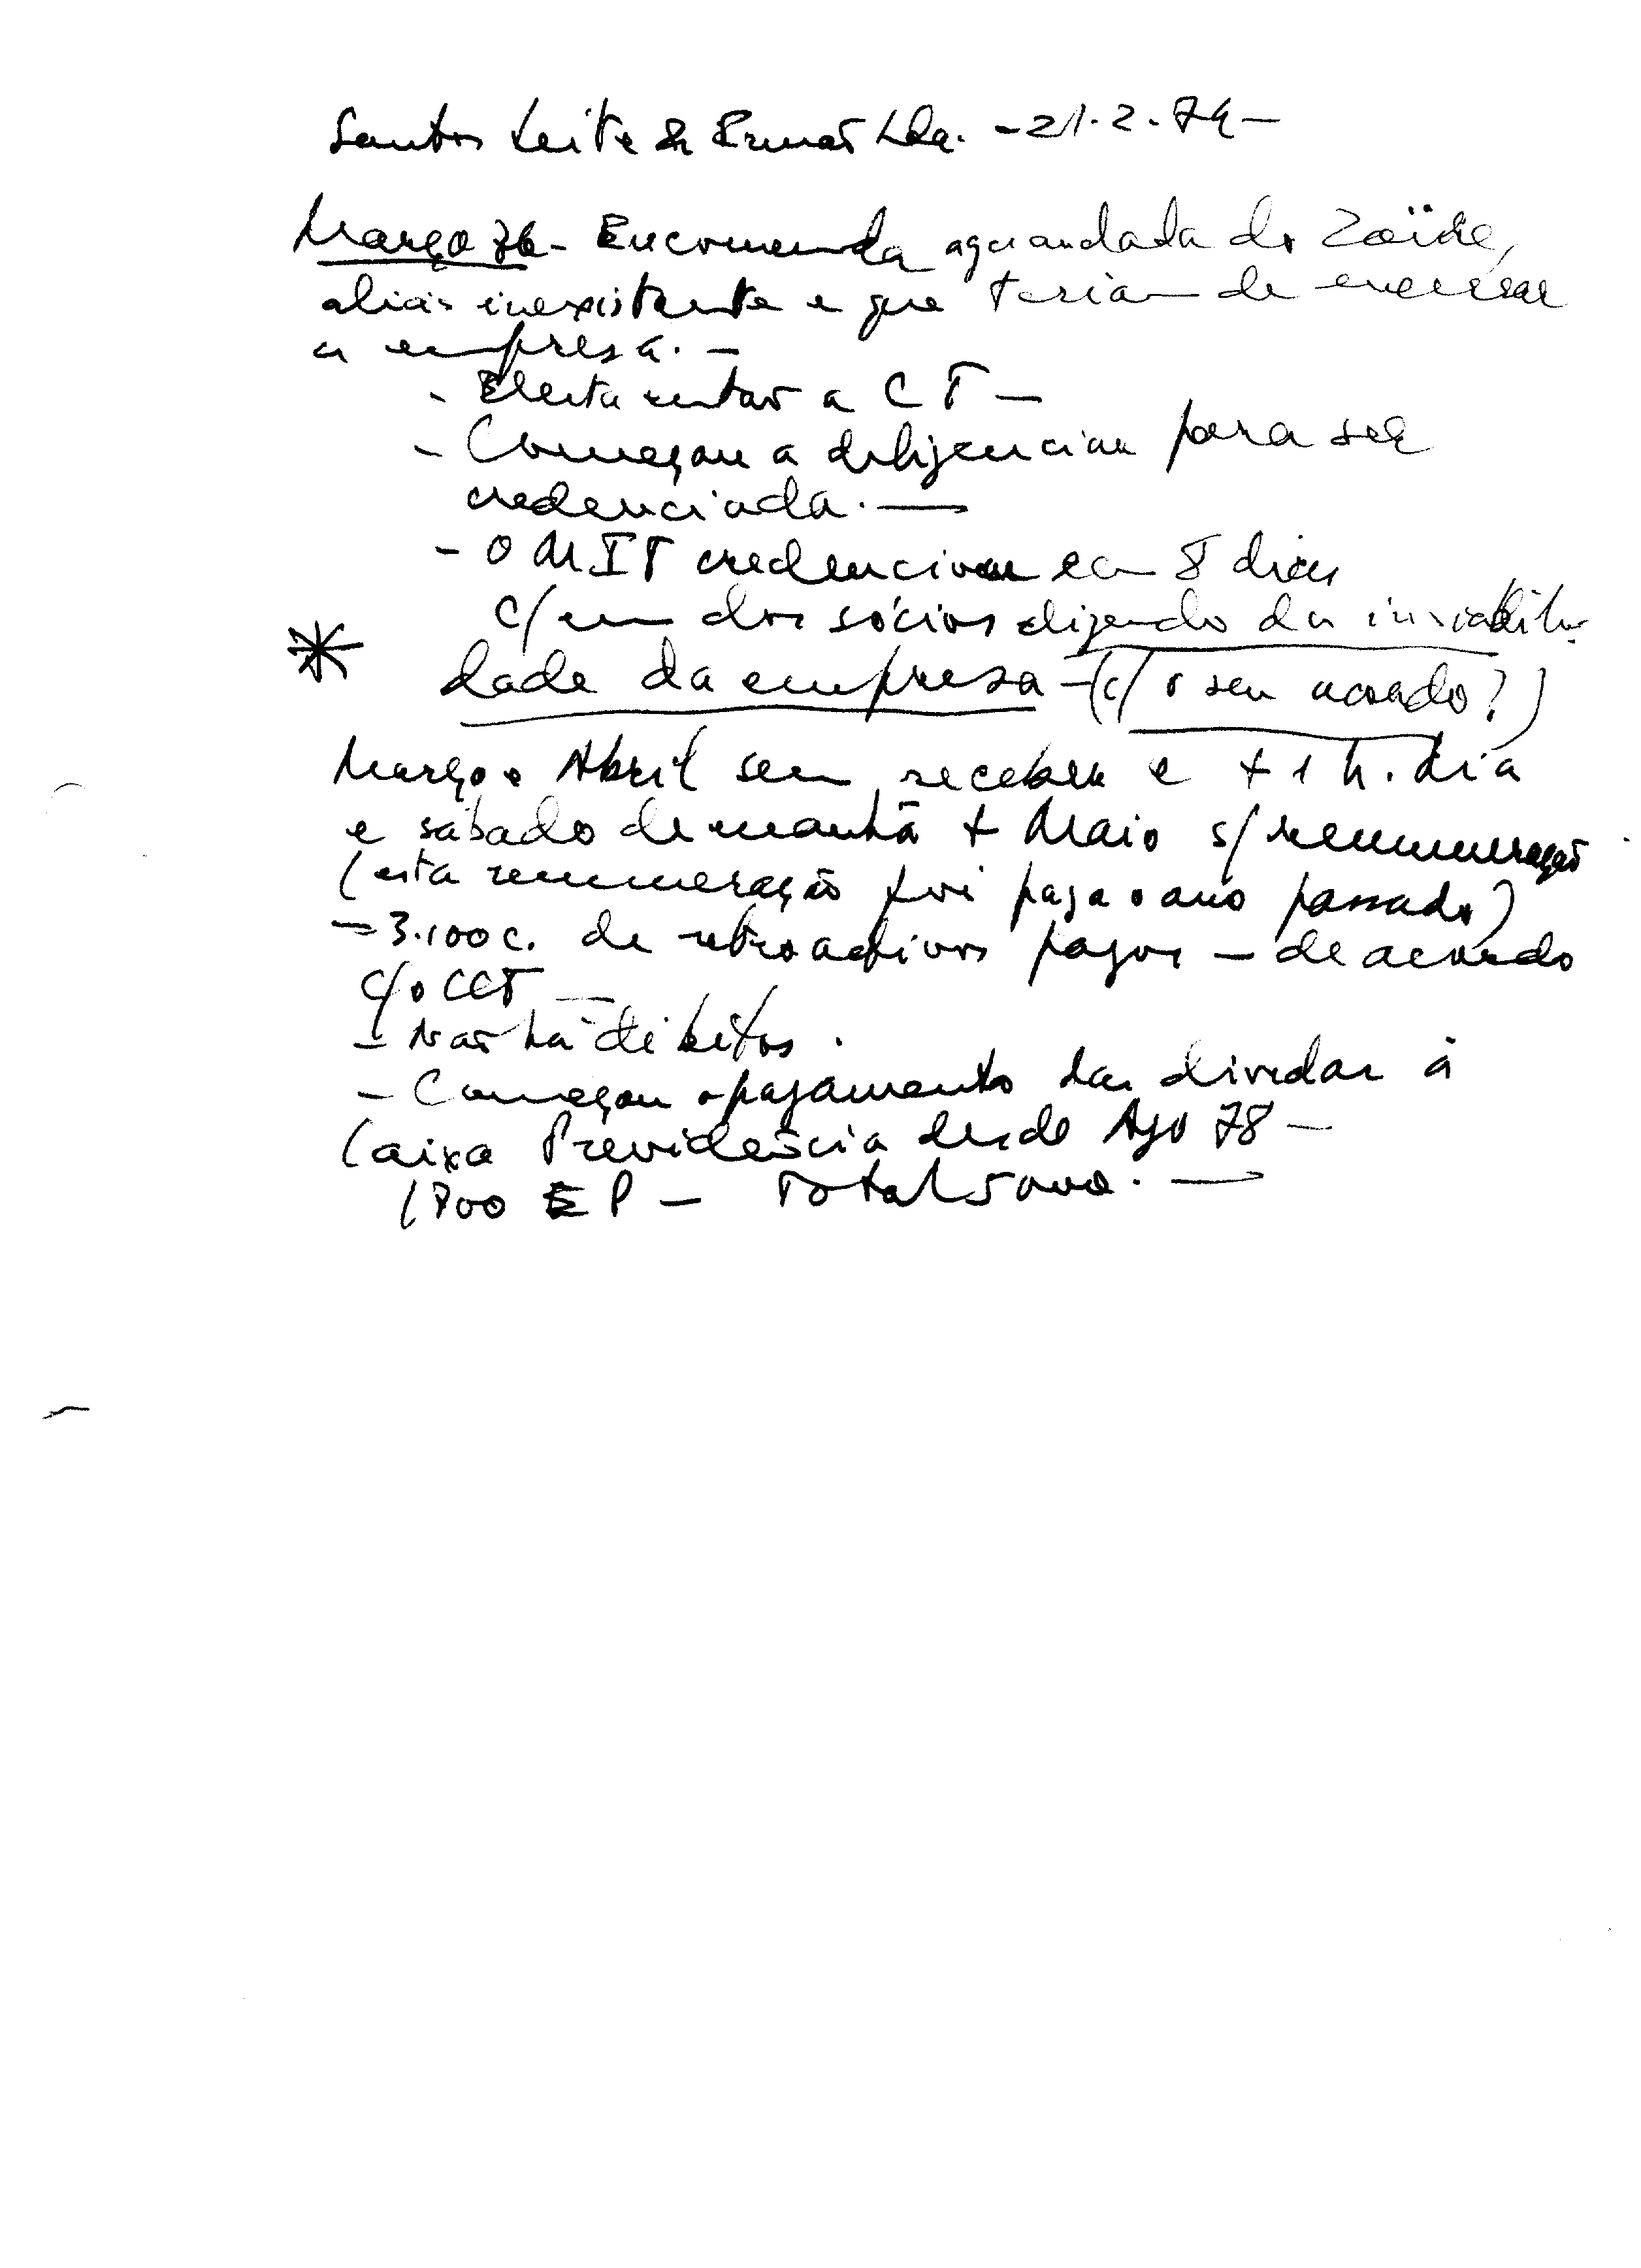 Santos Leite & Irmão Lda. - 21.2.79 -
Março 76 - Encomenda aguardada do Zaïre,
aliás inexistente e que teriam de encerrar
a empresa. -
- Eleita então a CT -
- Começou a diligenciar para ser
credenciada. -
- O MIT credenciou em 8 dias
c/ um dos sócios dizendo da inviabili-
* dade da empresa - (c/ o seu acordo?)
Março e Abril sem receber e + 1 h. dia
e sábado de manhã + Maio s/ remuneração
(esta remuneração foi paga o ano passado)
- 3.100 c. de retroactivos pagos - de acordo
c/ o CCT -
- Não há débitos.
- Começou o pagamento das dívidas à
Caixa Previdência desde Ago 78 -
P - Total